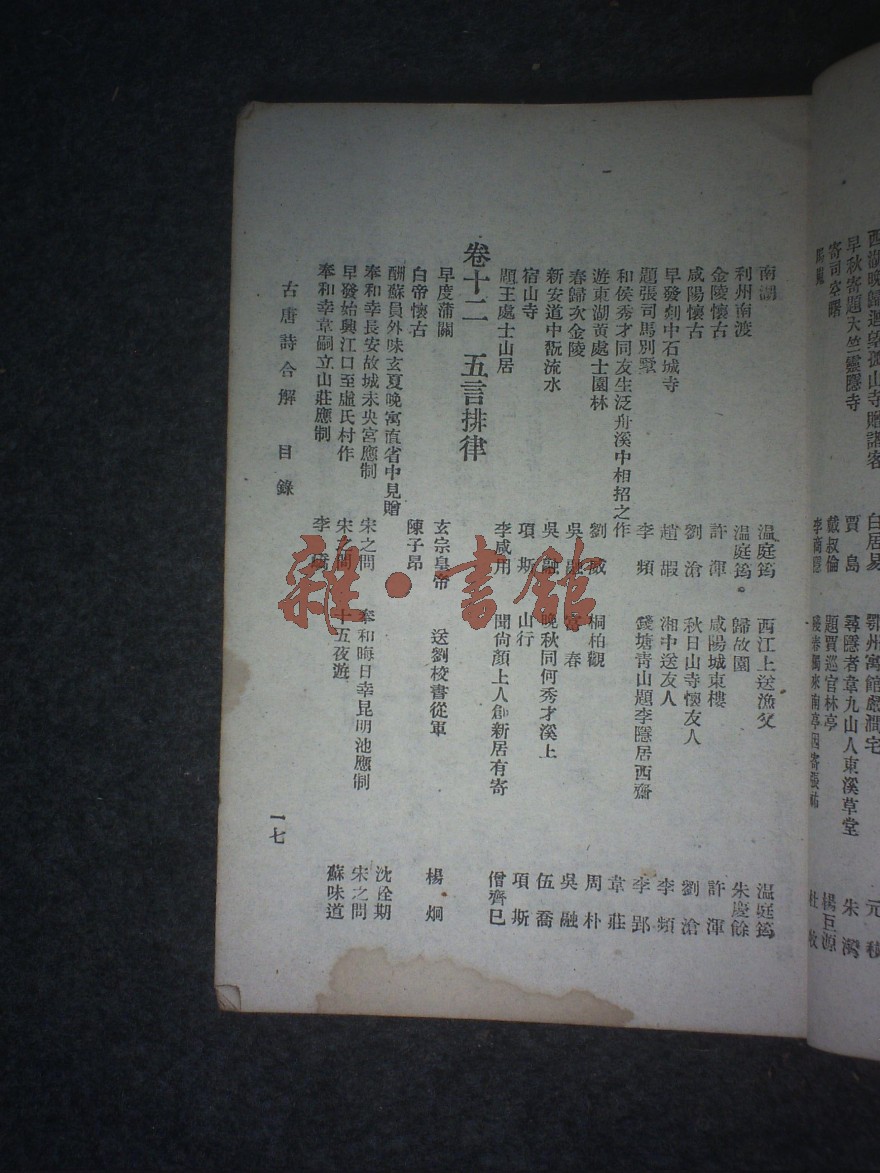 西湖晚歸迴望孤山寺贈諸客 白居易 鄂州寓館嚴澗宅 元稹
早秋寄題天竺靈隱寺 賈島 尋隱者韋九山人東溪草堂 朱灣
寄司空曙 戴叔倫 題賈巡官林亭 楊巨源
李商隱
南湖 温庭筠 西江上送漁父 温庭筠
利州南渡 温庭筠 歸故園 朱慶餘
金陵懷古 許渾 咸陽城東樓 許渾
咸陽懷古 劉滄 秋日山寺懷友人 劉滄
早發剡中石城寺 趙嘏 湘中送友人 李頻
題張司馬別墅 李頻 錢塘青山題李隱居西齋 李郢
和侯秀才同友生泛舟溪中相招之作 韋莊
遊東湖黃處士園林 劉威 桐柏觀 周朴
春歸次金陵 吳融 富春 吳融
新安道中翫流水 吳融 晚秋同何秀才溪上 伍喬
宿山寺 項斯 山行 項斯
題王處士山居 李咸用 聞尚顏上人創新居有寄 僧齊巳
卷十二 五言排律
早度蒲關 玄宗皇帝 送劉校書從軍 楊炯
白帝懷古 陳子昂
酬蘇員外味玄夏晚寓直省中見贈 沈佺期
奉和幸長安故城未央宮應制 宋之問 奉和晦日幸昆明池應制 宋之問
早發始興江口至虛氏村作 宋之問 十五夜遊 蘇味道
奉和幸韋嗣立山莊應制 李嶠
古唐詩合解 目錄 一七
雜·書館